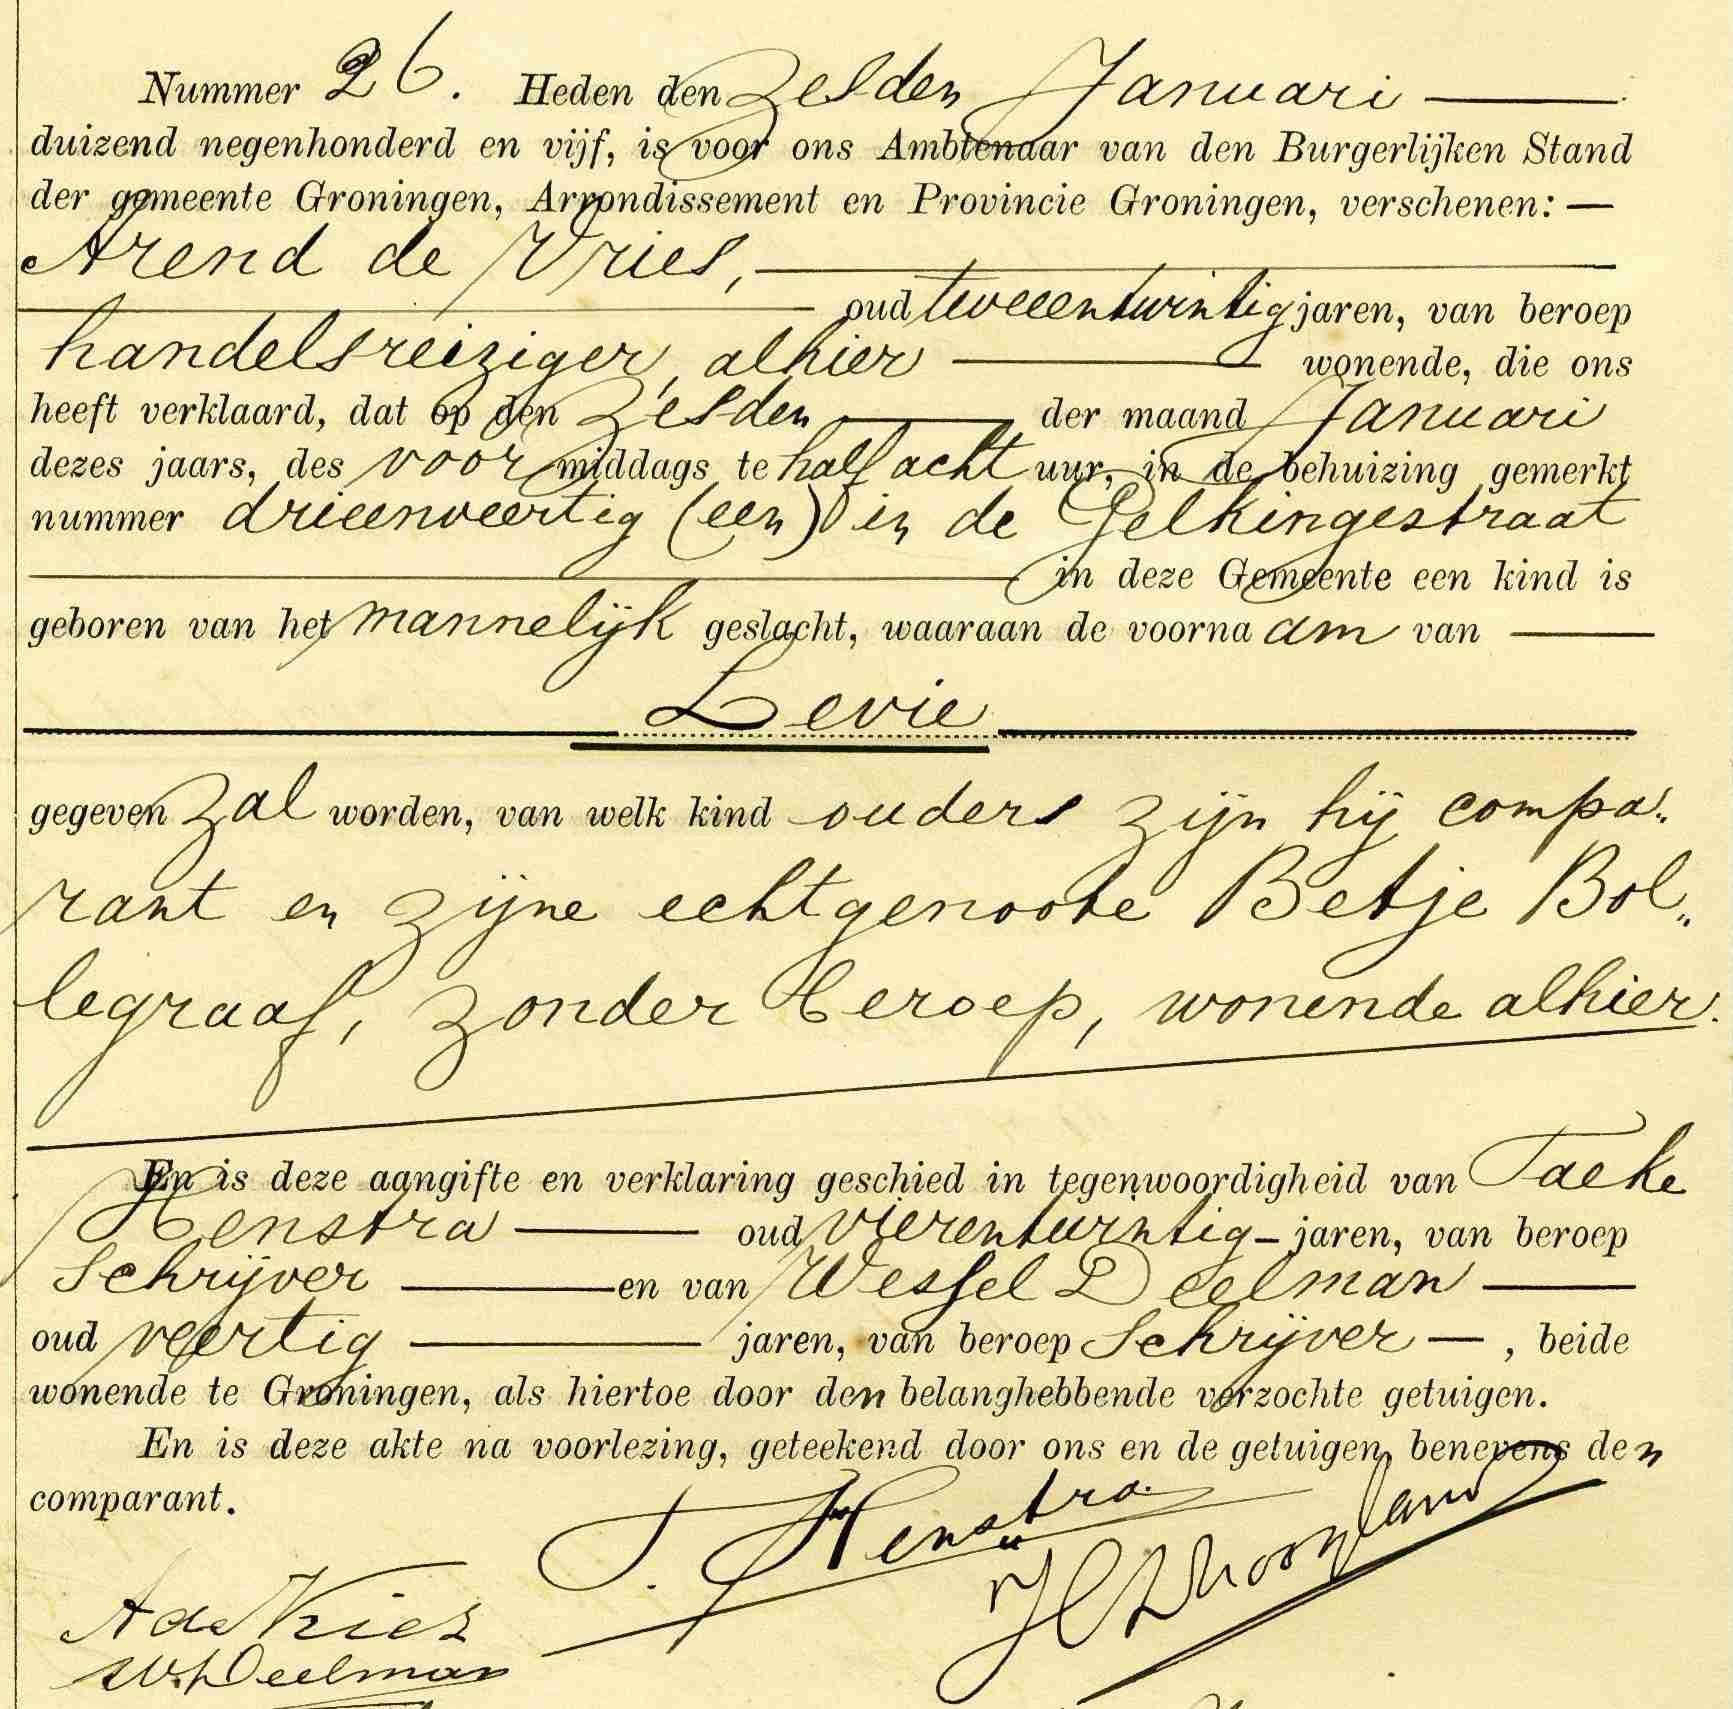 Nummer 26. Heden den zesden Januari
duizend negenhonderd en vijf, is voor ons Ambtenaar van den Burgerlijken Stand
der gemeente Groningen, Arrondissement en Provincie Groningen, verschenen: —
Arend de Vries,
oud tweeentwintig jaren, van beroep
handelsreiziger, alhier wonende, die ons
heeft verklaard, dat op den zesden der maand Januari
dezes jaars, des voor middags te half acht uur, in de behuizing gemerkt
nummer drieenveertig (een) in de Gelkingestraat
in deze Gemeente een kind is
geboren van het mannelijk geslacht, waaraan de voornaam van
Levie
gegeven zal worden, van welk kind ouders zijn hij compa„
rant en zijne echtgenoote Betje Bol„
legraaf, zonder beroep, wonende alhier.
En is deze aangifte en verklaring geschied in tegenwoordigheid van Taeke
Henstra oud vierentwintig – jaren, van beroep
Schrijver en van Wessel Deelman
oud veertig jaren, van beroep Schrijver —, beide
wonende te Groningen, als hiertoe door den belanghebbende verzochte getuigen.
En is deze akte na voorlezing, geteekend door ons en de getuigen, benevens den
comparant.
T. Henstra
A de Vries
W. Deelman